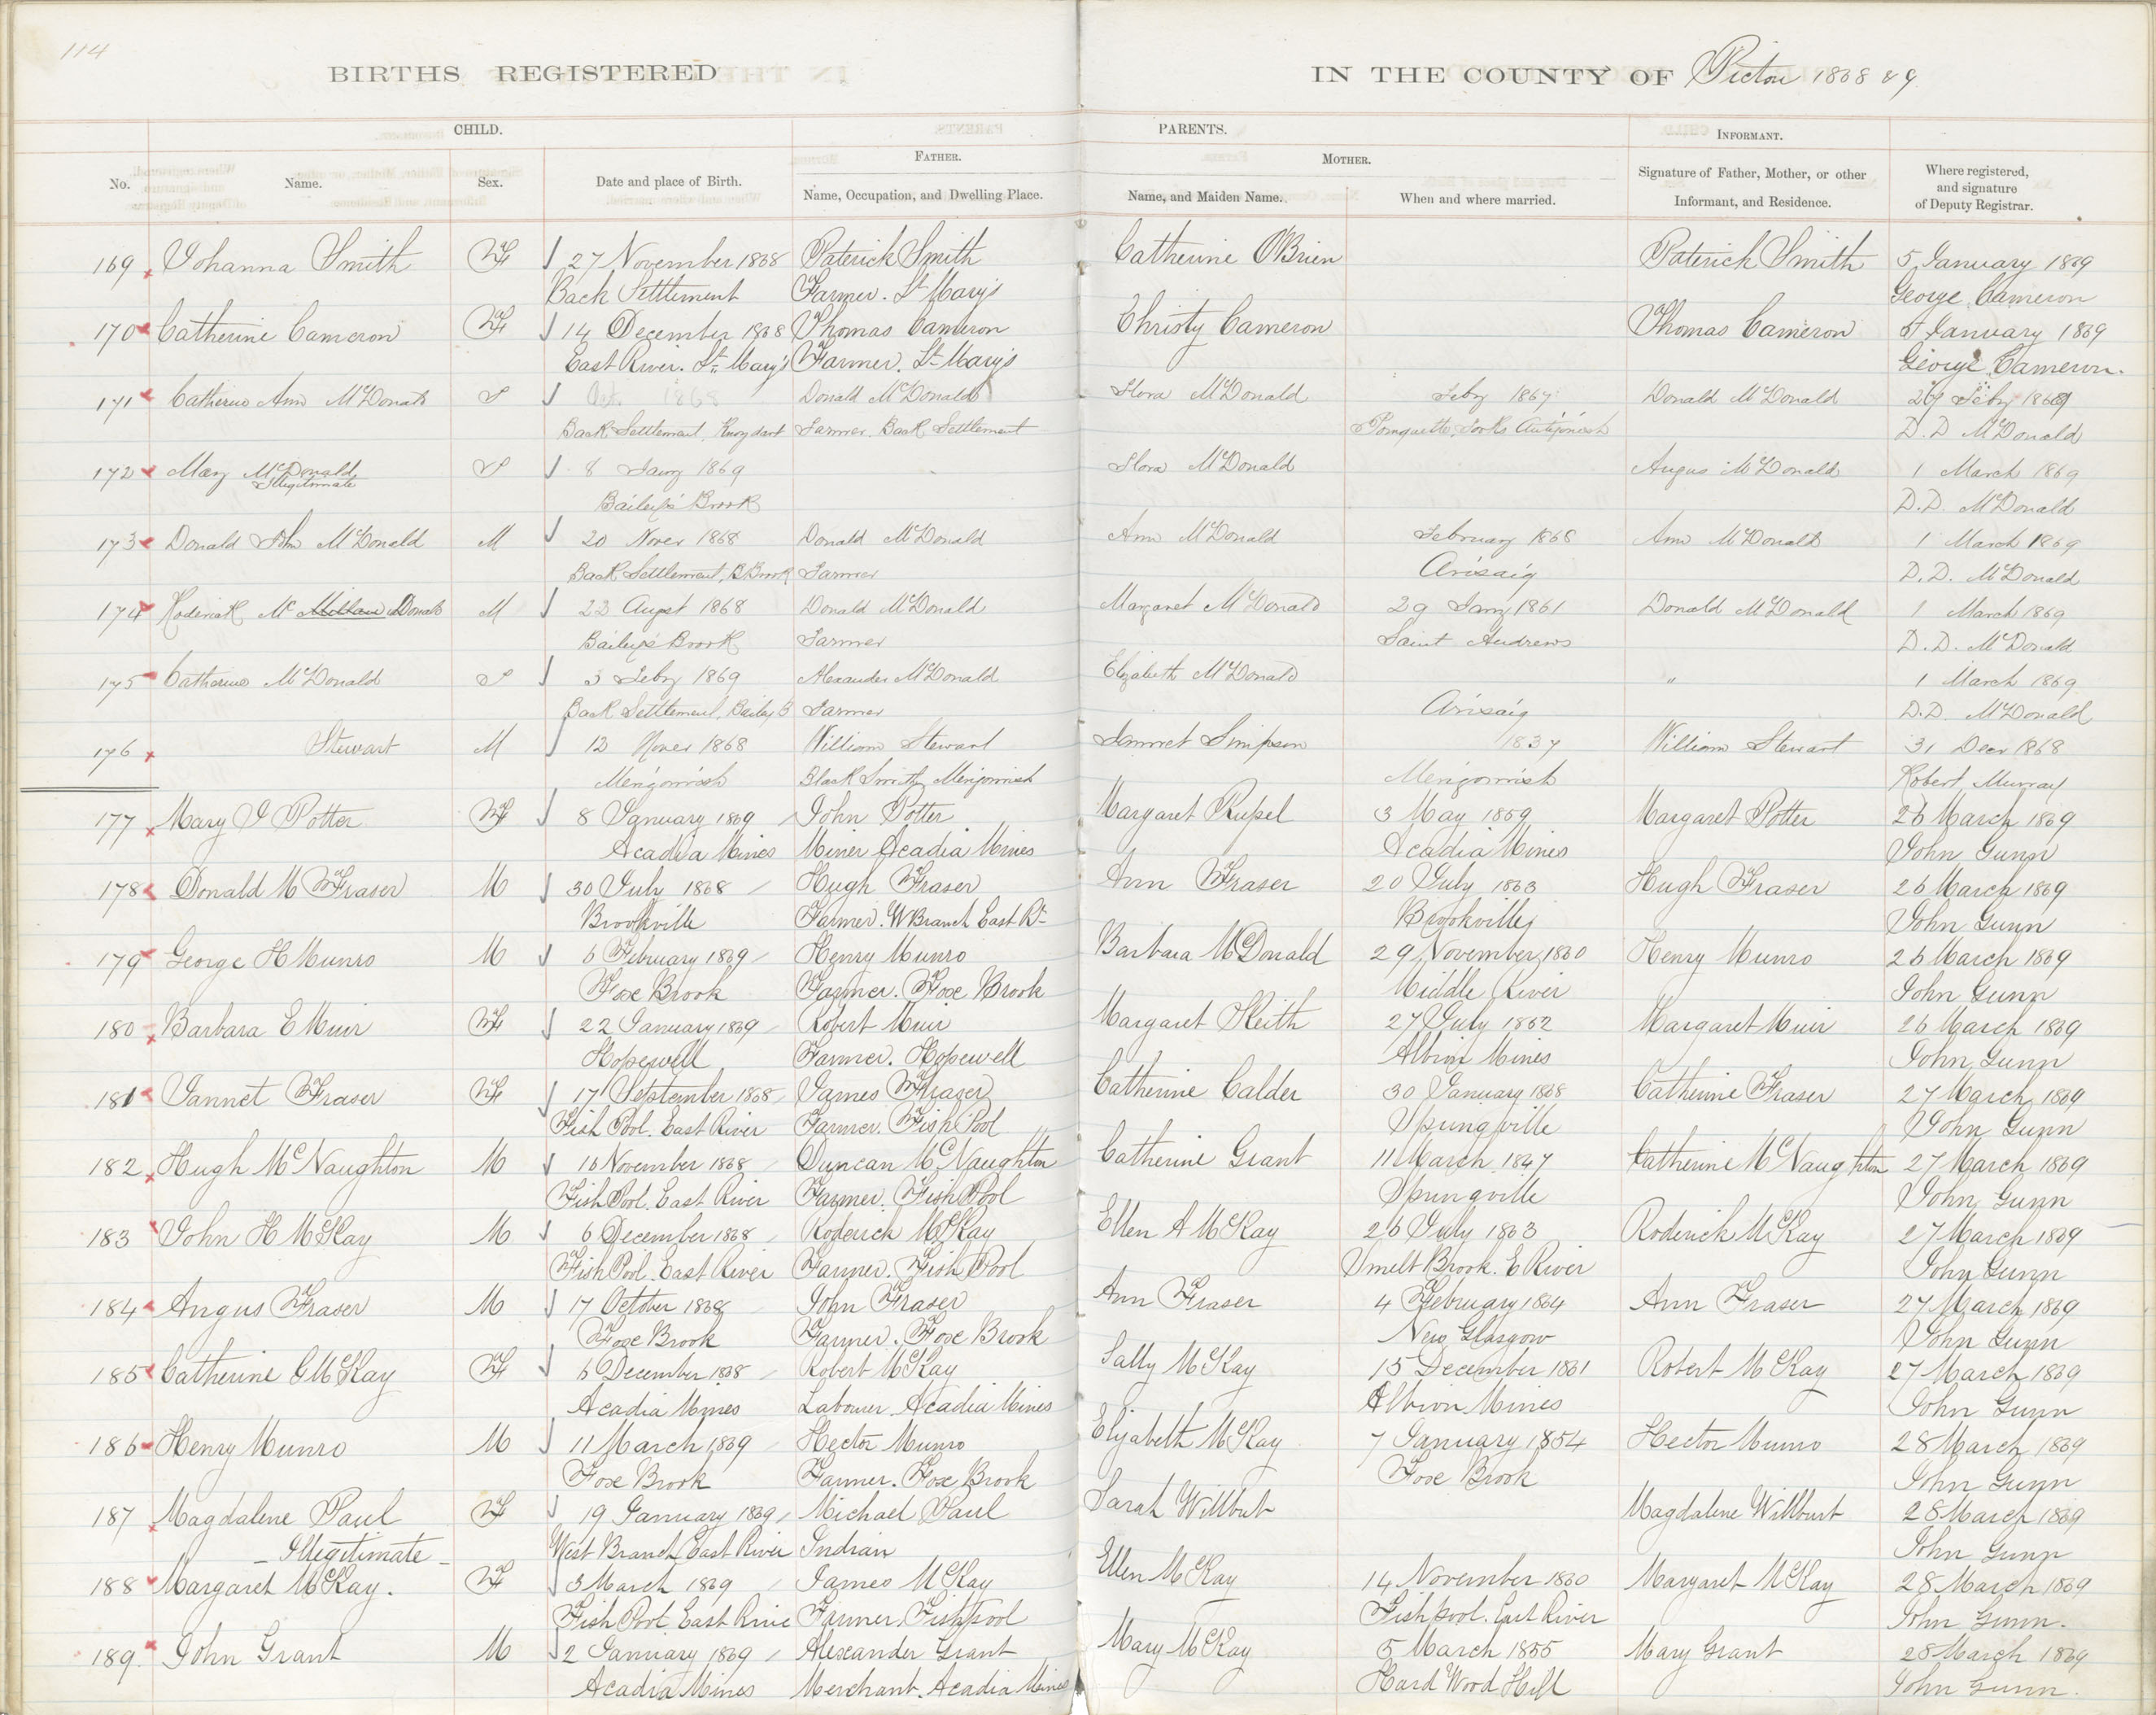 114
BIRTHS REGISTERED IN THE COUNTY OF Pictou 1868 & 9
CHILD. PARENTS. INFORMANT.
FATHER. MOTHER.
No. Name. Sex. Date and place of Birth. Name, Occupation, and Dwelling Place. Name, and Maiden Name. When and where married. Signature of Father, Mother, or other Informant, and Residence. Where registered, and signature of Deputy Registrar.
169 Johanna Smith F 27 November 1868 Paterick Smith Catherine O'Brien Paterick Smith 5 January 1869
Back Settlement Farmer. St Mary's George Cameron
170 Catherine Cameron F 14 December 1868 Thomas Cameron Christy Cameron Thomas Cameron January 1869
East River. St Mary's Farmer. St Mary's George Cameron.
171 Catherine Ann McDonald F Oct 1868 Donald McDonald Flora McDonald Feby 1867 Donald McDonald Feby 1869
Back Settlement, Knoydart Farmer Back Settlement Pomquette Antigonish D.D McDonald
172 Mary McDonald F 8 Jany 1869 Flora McDonald Angus McDonald 1 March 1869
Illegitimate Bailey's Brook D.D. McDonald
173 Donald John McDonald M 20 Nover 1868 Donald McDonald Ann McDonald February 1868 Ann McDonald 1 March 1869
Back Settlement, B Brook Farmer Arisaig D.D. McDonald
174 Roderick Mc Millan Donald M 22 Augst 1868 Donald McDonald Margaret McDonald 29 Jany 1861 Donald McDonald 1 March 1869
Bailey's Brook Farmer Saint Andrews D.D. McDonald
175 Catherine McDonald F 3 Feby 1869 Alexander McDonald Elizabeth McDonald " 1 March 1869
Back Settlement, Bailey B Farmer Arisaig D.D. McDonald
176 Stewart M 12 Nover 1868 William Stewart Jannet Simpson 1837 William Stewart 31 Decr 1868
Merigomish Black Smith Merigomish Merigomish Robert Murray
177 Mary J Potter F 8 January 1869 John Potter Margaret Rupel 3 May 1859 Margaret Potter 26 March 1869
Acadia Mines Miner Acadia Mines Acadia Mines John Gunn
178 Donald M Fraser M 30 July 1868 Hugh Fraser Ann Fraser 20 July 1863 Hugh Fraser 26 March 1869
Brookville Farmer. W Branch East Rr Brookville John Gunn
179 George H Munro M 6 February 1869 Henry Munro Barbara McDonald 29 November 1860 Henry Munro 26 March 1869
Foxe Brook Farmer. Foxe Brook Middle River John Gunn
180 Barbara E Muir F 22 January 1869 Robert Muir Margaret Keith 27 July 1862 Margaret Muir 26 March 1869
Hopewell Farmer. Hopewell Albion Mines John Gunn
181 Jannet Fraser F 17 September 1868 James Fraser Catherine Calder 30 January 1868 Catherine Fraser 27 March 1869
Fish Pool. East River Farmer. Fish Pool Springville John Gunn
182 Hugh McNaughton M 16 November 1868 Duncan McNaughton Catherine Grant 11 March 1847 Catherine McNaughton 27 March 1869
Fish Pool. East River Farmer. Fish Pool Springville John Gunn
183 John H McKay M 6 December 1868 Roderick McKay Ellen A McKay 26 July 1863 Roderick McKay 27 March 1869
Fish Pool. East River Farmer. Fish Pool Smelt Brook. E River John Gunn
184 Angus Fraser M 17 October 1868 John Fraser Ann Fraser 4 February 1864 Ann Fraser 27 March 1869
Foxe Brook Farmer. Foxe Brook New Glasgow John Gunn
185 Catherine G McKay F 6 December 1868 Robert McKay Sally McKay 15 December 1861 Robert McKay 27 March 1869
Acadia Mines Labourer Acadia Mines Albion Mines John Gunn
186 Henry Munro M 11 March 1869 Hector Munro Elizabeth McKay 7 January 1854 Hector Munro 28 March 1869
Foxe Brook Farmer. Foxe Brook Foxe Brook John Gunn
187 Magdalene Paul F 19 January 1869 Michael Paul Sarah Willbut Magdalene Willburt 28 March 1869
- Illegitimate - West Branch East River Indian John Gunn
188 Margaret McKay. F 3 March 1869 James McKay Ellen McKay 14 November 1860 Margaret McKay 28 March 1869
Fish Pool East Rive Farmer. Fishpool Fishpool. East River John Gunn.
189. John Grant M 2 January 1869 Alexander Grant Mary McKay 5 March 1855 Mary Grant 28 March 1869
Acadia Mines Merchant. Acadia Mines Hard Wood Hill John Gunn.